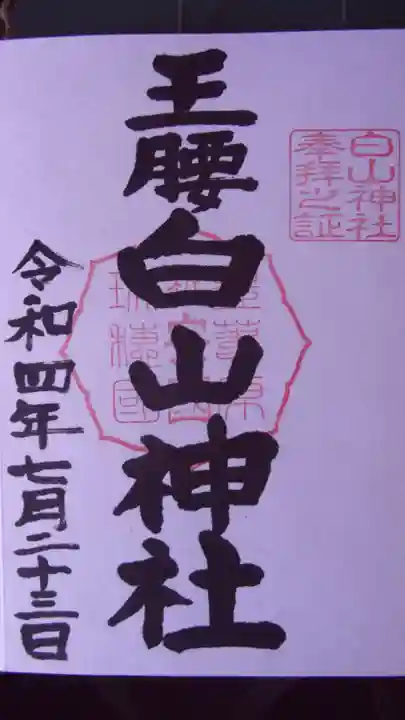 白山神社
奉拝之証
王腰白山神社
令和四年七月二十三日